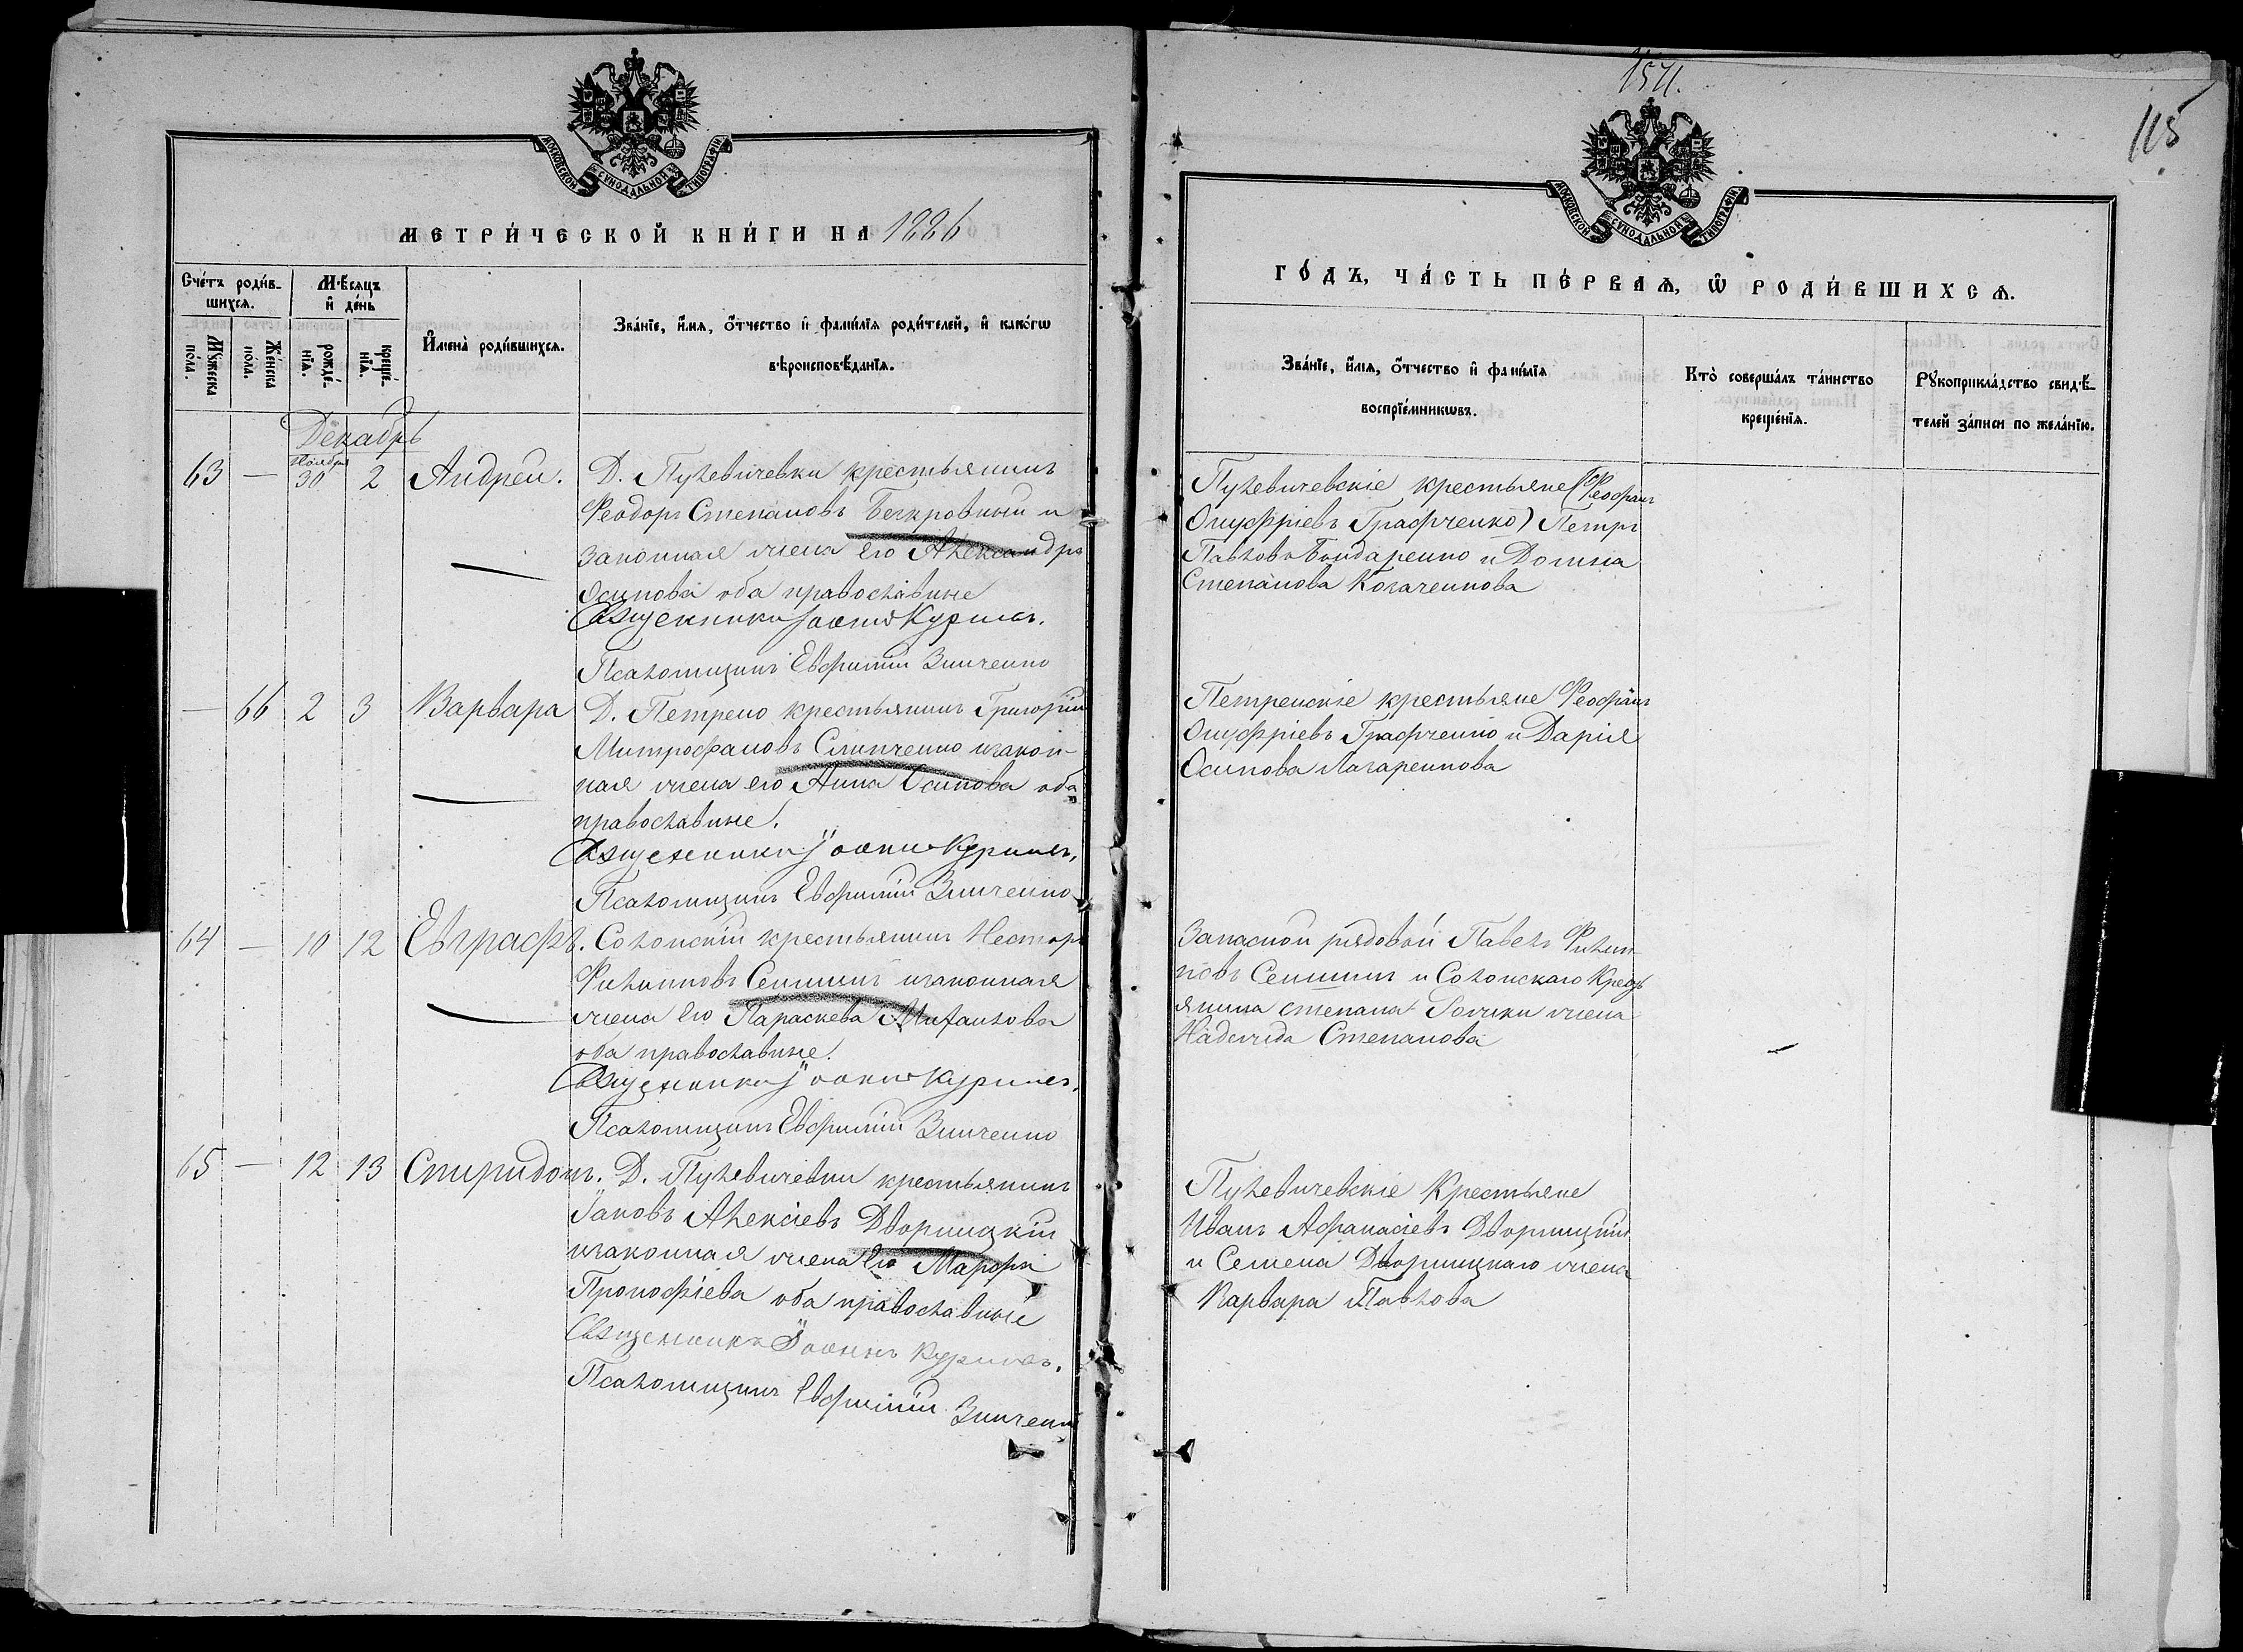 МОСКОВСКОЙ СУНОДАЛЬНОЙ ТИПОГРАФІИ
МЕТРИ́ЧЕСКОЙ КНИ́ГИ НА 1886
Сче́тъ роди́в-
шихсѧ.
Мѣ́сяцъ
и҆ де́нь
Мꙋ́жеска
по́ла.
Же́нска
по́ла.
рожде́-
нїѧ.
креще́-
нїѧ.
И҆мена̀ роди́вшихсѧ.
Зва́нїе, и҆́мѧ, о҆́тчество и҆ фами́лїѧ роди́телей, и҆ како́гѡ
вѣроисповѣ́данїѧ.
Декабрь
63 — Ноября 30 2 Андрей. Д. Пулевичевки крестьянинъ
Ѳеодоръ Степановъ Безкровный и
законная жена его Александра
Осипова оба православные
Священникъ Іоаннъ Куриловъ.
Псаломщикъ Евфимій Зинченко
— 66 2 3 Варвара Д. Петрено крестьянинъ Григорій
Митрофановъ Слипченко изакон-
ная жена его Анна Осипова оба
православные.
Священникъ Іоаннъ Куриловъ.
Псаломщикъ Евфимій Зинченко
64 — 10 12 Евграфъ. Солонскій крестьянинъ Несторъ
Филипповъ Сенинъ изаконная
жена его Параскева Михайлова
оба православные.
Священникъ Іоаннъ Куриловъ.
Псаломщикъ Евфимій Зинченко
65 — 12 13 Спиридонъ. Д. Пулевичевки крестьянинъ
Іаковъ Алексіевъ Дворницкій
изаконная жена его Марфа
Прокофіева оба православные
Священникъ Іоаннъ Куриловъ.
Псаломщикъ Евфимій Зинченко
115
МОСКОВСКОЙ СУНОДАЛЬНОЙ ТИПОГРАФІИ
ГО́ДЪ, ЧА́СТЬ ПЕ́РВАѦ, Ѡ҆ РОДИ́ВШИХСѦ.
Зва́нїе, и҆́мѧ, о҆́тчество и҆ фами́лїѧ
воспрїе́мникѡвъ.
Кто̀ соверша́лъ та́инство
креще́нїѧ.
Рꙋкоприкла́дство свидѣ́-
телей за́писи по жела́нїю.
Пулевичевскіе крестьяне (Ѳеофанъ
Онуфріевъ Графченко) Петръ
Павловъ Бондаренко и Домна
Степанова Козаченкова
Петренскіе крестьяне Ѳеофанъ
Онуфріевъ Графченко и Дарія
Осипова Лазаренкова
Запасной рядовой Павелъ Филип-
повъ Сенинъ и Солонскаго Кресть
янина степана жена
Надежда Степанова
Пулевичевскіе Крестьяне
Иванъ Афанасіевъ Дворницкій
и Семена Дворницкаго жена
Варвара Павлова